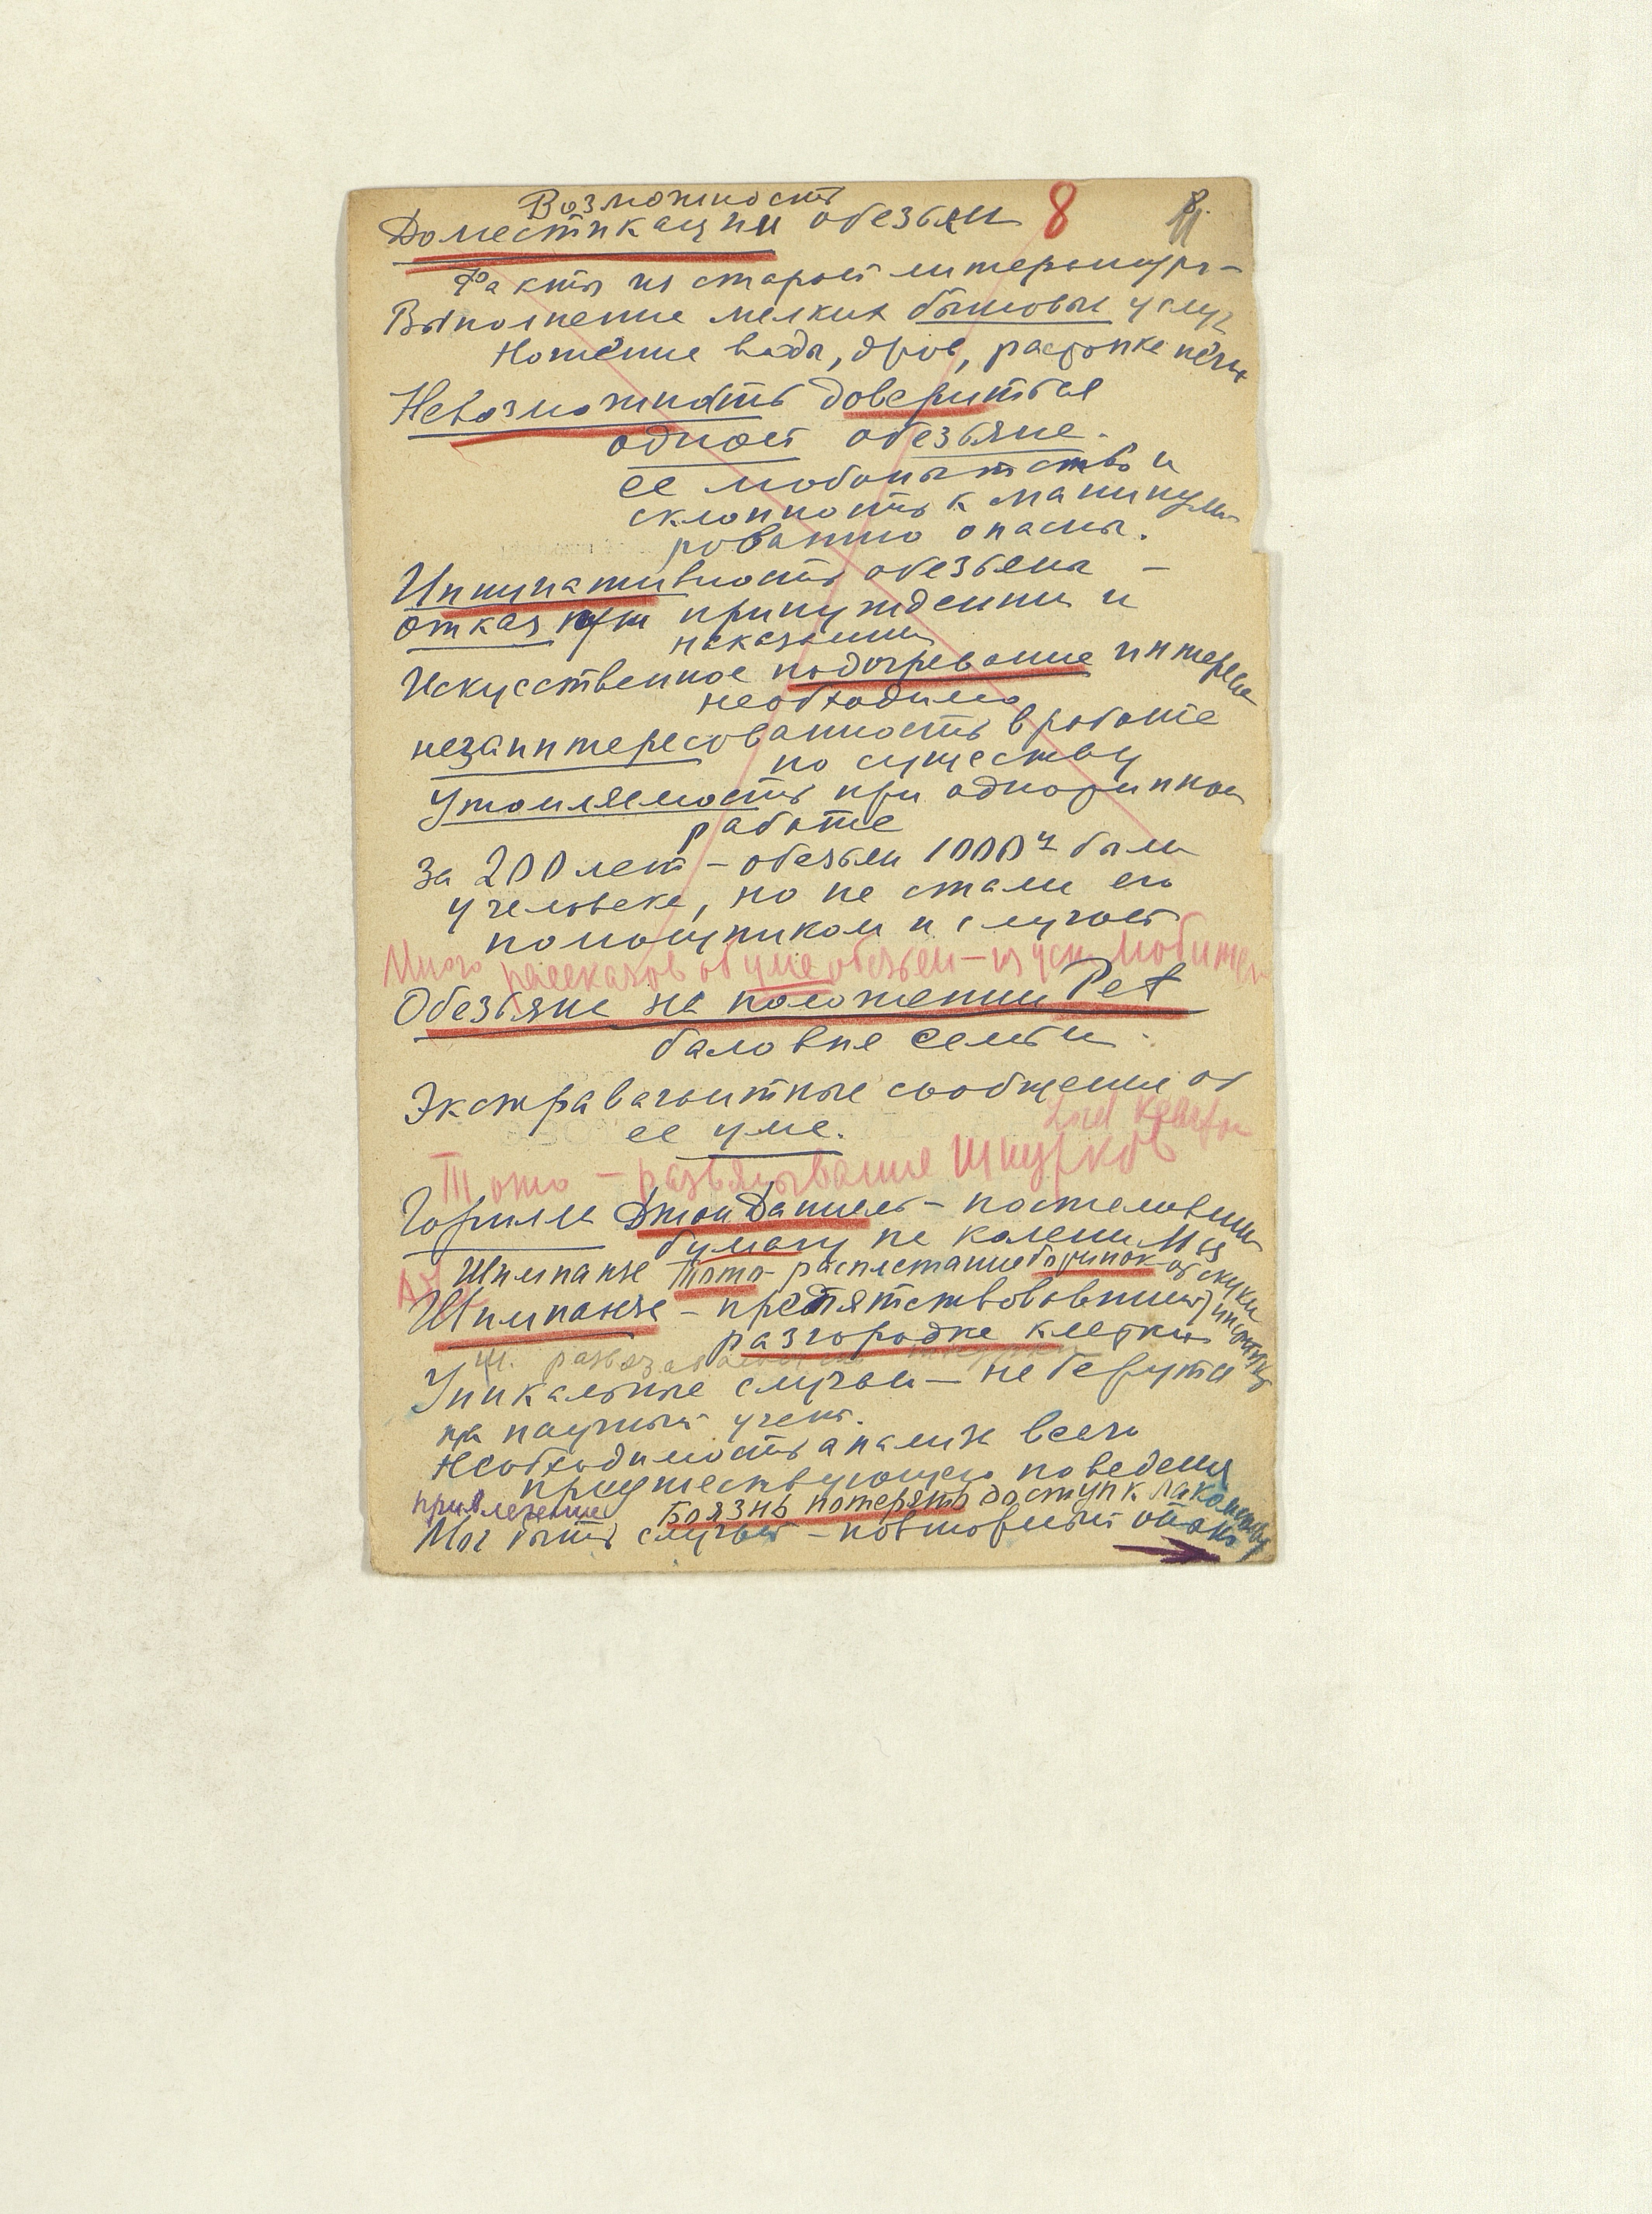 Возможность
Доместикации обезьян 8
Факты из старой литературы –
Выполнение мелких бытовых услуг
Ношение воды, дров, растопке печи
Невозможность довериться
одной обезьяне.
ее любопытство и
склонность к манипули
рованию опасны.
Инициативность обезьяны –
отказ при принуждении и
наказании
Искусственное подогревание интереса
необходимо
незаинтересованность в работе
по существу
Утомляемость при однотипной
работе
За 200 лет – обезьян 1000ч были
у человека, но не стали его
помощником и слугой
Много рассказов об уме обезьян – из уст любителей
Обезьяна на положении Pet
баловня семьи.
Экстравагантные сообщения об
ее уме.
Тото – развязывание шнурков
Горилла Джон Даниель – постелившая
бумагу на колени
Шимпанзе Тото – расплетание ботинок – от скуки
Шимпанзе – препятствовавший
разгородке клетки
Ш. развязывание
Уникальные случаи – не берутся
на научный учет.
Необходимость анализа всего
предшествующего поведения
привлечение Боязнь потерять доступ к лакомству
Мог быть случай – повторный опыт